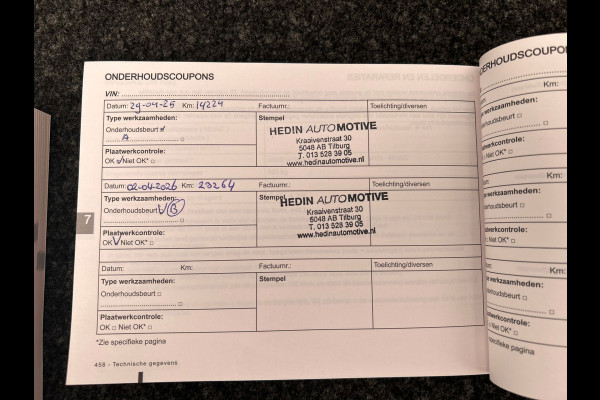 ONDERHOUDSCOUPONS
VIN:
Datum: 29-04-25 Km: 14224 Factuurnr.: Toelichting/diversen
Type werkzaamheden: Stempel
Onderhoudsbeurt
A
HEDIN AUTOMOTIVE
Kraaivenstraat 30
5048 AB Tilburg
T. 013 528 39 05
www.hedinautomotive.nl
Plaatwerkcontrole:
OK Niet OK*
Datum: 02-04-2026 Km: 23264 Factuurnr.: Toelichting/diversen
Type werkzaamheden: Stempel
Onderhoudsbeurt B
HEDIN AUTOMOTIVE
Kraaivenstraat 30
5048 AB Tilburg
T. 013 528 39 05
www.hedinautomotive.nl
Plaatwerkcontrole:
OK Niet OK*
7
Datum: Km: Factuurnr.: Toelichting/diversen
Type werkzaamheden: Stempel
Onderhoudsbeurt
Plaatwerkcontrole:
OK Niet OK*
*Zie specifieke pagina
458 - Technische gegevens
Km:
werkzaamheden:
Km:
werkzaamheden:
Km:
werkzaamheden:
specifieke pagina